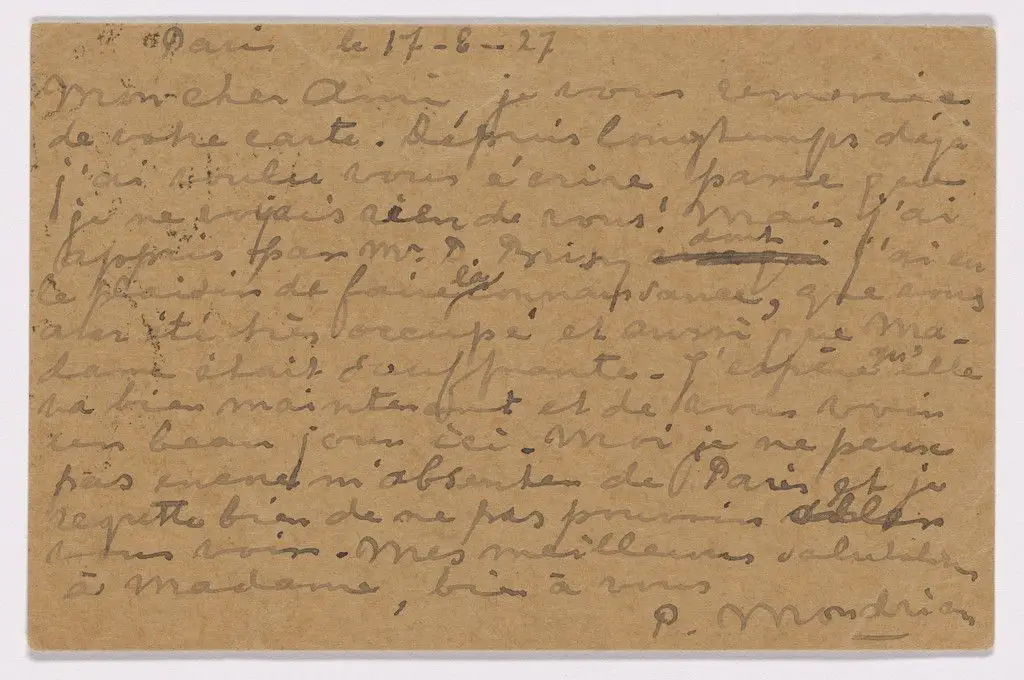 Paris le 17-8-27
Mon cher Ami je vous remercie
de votre carte. Dépuis longtemps déjà
j'ai voulu vous écrire parce que
je ne voyais rien de vous! Mais j'ai
appris par Mr. P. dont j'ai eu
le plaisir de faire la connaissance, que vous
avez été très occupé et aussi que Ma-
dame était souffrante. J'espère qu'elle
va bien maintenant et de vous voir
un beau jour ici. Moi je ne peux
pas encore m'absenter de Paris et je
regrette bien de ne pas pouvoir aller
vous voir. Mes meilleures salutations
à Madame, bien à vous
P. Mondrian